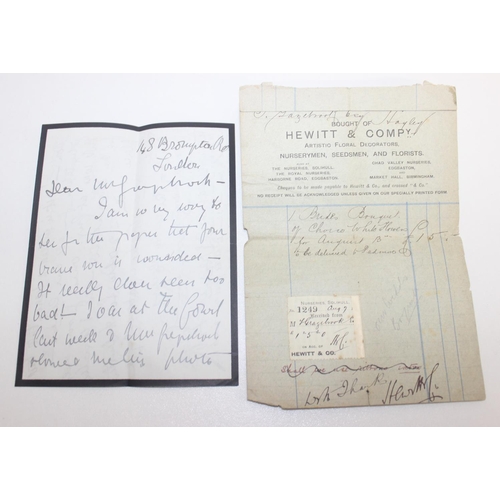 148 Brompton Rd
London
Dear Mr Grazebrook –
I am so very sorry to
see in the paper that your
brave son is wounded –
It really does seem too
bad – I was at the Court
last week & Mrs Grazebrook
showed me his photo
Grazebrook Esq
Hagley
BOUGHT OF
HEWITT & COMPY
ARTISTIC FLORAL DECORATORS,
NURSERYMEN, SEEDSMEN, AND FLORISTS.
THE NURSERIES, SOLIHULL,
THE ROYAL NURSERIES,
HARBORNE ROAD, EDGBASTON,
CHAD VALLEY NURSERIES,
EDGBASTON,
AND
MARKET HALL, BIRMINGHAM.
Cheques to be made payable to Hewitt & Co., and crossed "& Co."
NO RECEIPT WILL BE ACKNOWLEDGED UNLESS GIVEN ON OUR SPECIALLY PRINTED FORM
1 Bridle Bouquet
of Choice White Flowers
for August
to be delivered
1249 Aug 7
Received from
Grazebrook
1 " 5 " 0
HEWITT & CO.
with Thanks
Hewitt & Co